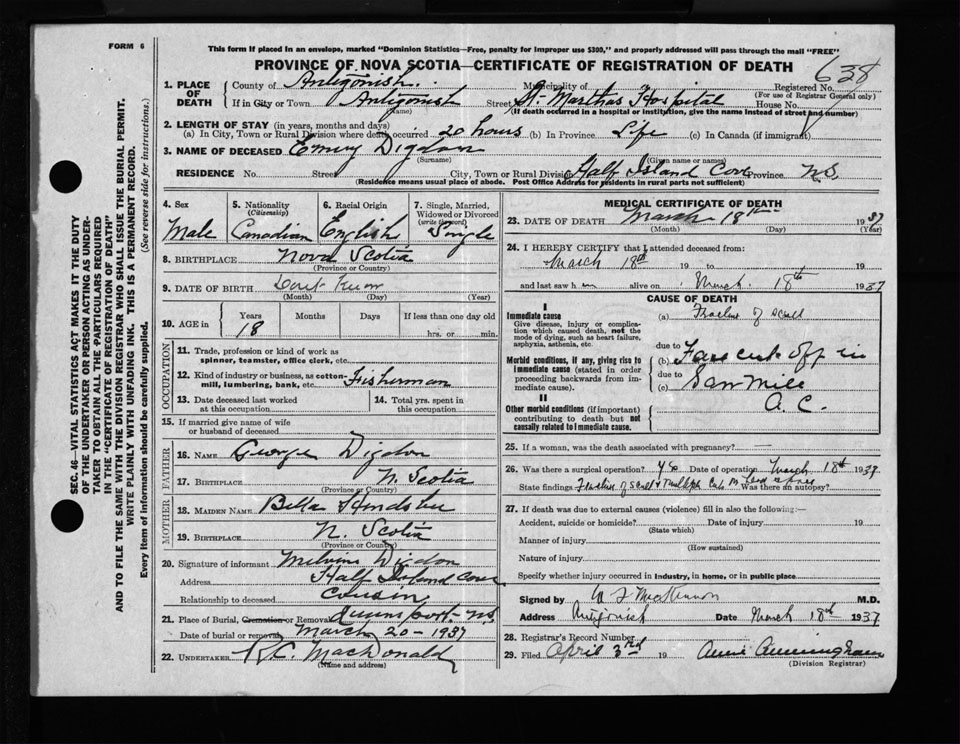 FORM 6
This form if placed in an envelope, marked "Dominion Statistics—Free, penalty for improper use $300," and properly addressed will pass through the mail "FREE"
PROVINCE OF NOVA SCOTIA—CERTIFICATE OF REGISTRATION OF DEATH
638
1. PLACE OF DEATH
County of Antigonish. Municipality of Registered No.
(For use of Registrar General only)
If in City or Town Antigonish Street St. Marthas Hospital House No.
(Name) (If death occurred in a hospital or institution, give the name instead of street and number)
2. LENGTH OF STAY (in years, months and days)
(a) In City, Town or Rural Division where death occurred 20 hours (b) In Province Life (c) In Canada (if immigrant)
3. NAME OF DECEASED Emery Digdon
(Surname) (Given name or names)
RESIDENCE No. Street City, Town or Rural Division Half Island Cove Province N.S.
(Residence means usual place of abode. Post Office Address for residents in rural parts not sufficient)
4. Sex Male
5. Nationality (Citizenship) Canadian
6. Racial Origin English
7. Single, Married, Widowed or Divorced (write the word) Single
8. BIRTHPLACE Nova Scotia
(Province or Country)
9. DATE OF BIRTH Dont know
(Month) (Day) (Year)
10. AGE in Years Months Days If less than one day
18 hrs. or min.
OCCUPATION
11. Trade, profession or kind of work as spinner, teamster, office clerk, etc.
12. Kind of industry or business, as cotton-mill, lumbering, bank, etc. Fisherman
13. Date deceased last worked at this occupation
14. Total yrs. spent in this occupation
15. If married give name of wife or husband of deceased
FATHER
16. NAME George Digdon
17. BIRTHPLACE N. Scotia
(Province or Country)
MOTHER
18. MAIDEN NAME Bella
19. BIRTHPLACE N. Scotia
(Province or Country)
20. Signature of informant Melvine Digdon
Address Half Island Cove
Relationship to deceased Cousin
21. Place of Burial, Cremation or Removal Queensport N.S.
Date of burial or removal March 20 - 1937
22. UNDERTAKER R.C. MacDonald
(Name and address)
MEDICAL CERTIFICATE OF DEATH
23. DATE OF DEATH March 18th 1937
(Month) (Day) (Year)
24. I HEREBY CERTIFY that I attended deceased from:
March 18th 19 to 19
and last saw h m alive on March 18th 1937
CAUSE OF DEATH
I
Immediate cause (a) Fracture of scull
Give disease, injury or complication which caused death, not the mode of dying, such as heart failure, asphyxia, asthenia, etc.
due to
Morbid conditions, if any, giving rise to immediate cause (stated in order proceeding backwards from immediate cause).
(b) Face cut off in
due to
(c) Saw Mill
II
Other morbid conditions (if important) contributing to death but not causally related to immediate cause.
A.C.
25. If a woman, was the death associated with pregnancy? —
26. Was there a surgical operation? Yes Date of operation March 18th 1937
State findings Fracture of scull & multiple cuts Was there an autopsy?
27. If death was due to external causes (violence) fill in also the following:—
Accident, suicide or homicide? Date of injury 19
(State which)
Manner of injury
(How sustained)
Nature of injury
Specify whether injury occurred in industry, in home, or in public place
Signed by M.D.
Address Antigonish Date March 18th 1937
28. Registrar's Record Number
29. Filed April 3rd 19 Annie Cunningham
(Division Registrar)
SEC. 46—VITAL STATISTICS ACT MAKES IT THE DUTY
OF THE UNDERTAKER OR PERSON ACTING AS UNDER-
TAKER TO OBTAIN ALL THE PARTICULARS REQUIRED
IN THE "CERTIFICATE OF REGISTRATION OF DEATH"
AND TO FILE THE SAME WITH THE DIVISION REGISTRAR WHO SHALL ISSUE THE BURIAL PERMIT.
WRITE PLAINLY WITH UNFADING INK. THIS IS A PERMANENT RECORD.
Every item of information should be carefully supplied. (See reverse side for instructions.)